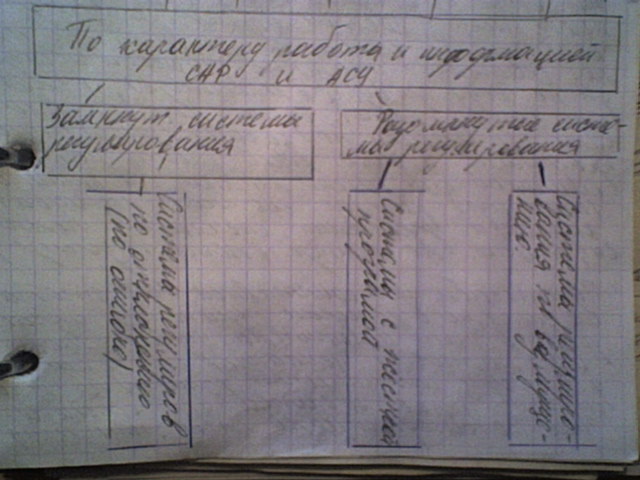 По характеру работы с информацией
САР и АСУ
Замкнут. системы
регулирования
Разомкнутые систе-
мы регулирования
Система регулиров
по отклонению
(по ошибке)
Системы с жесткой
програмой
Система регулиро-
вания по возмуще-
нию